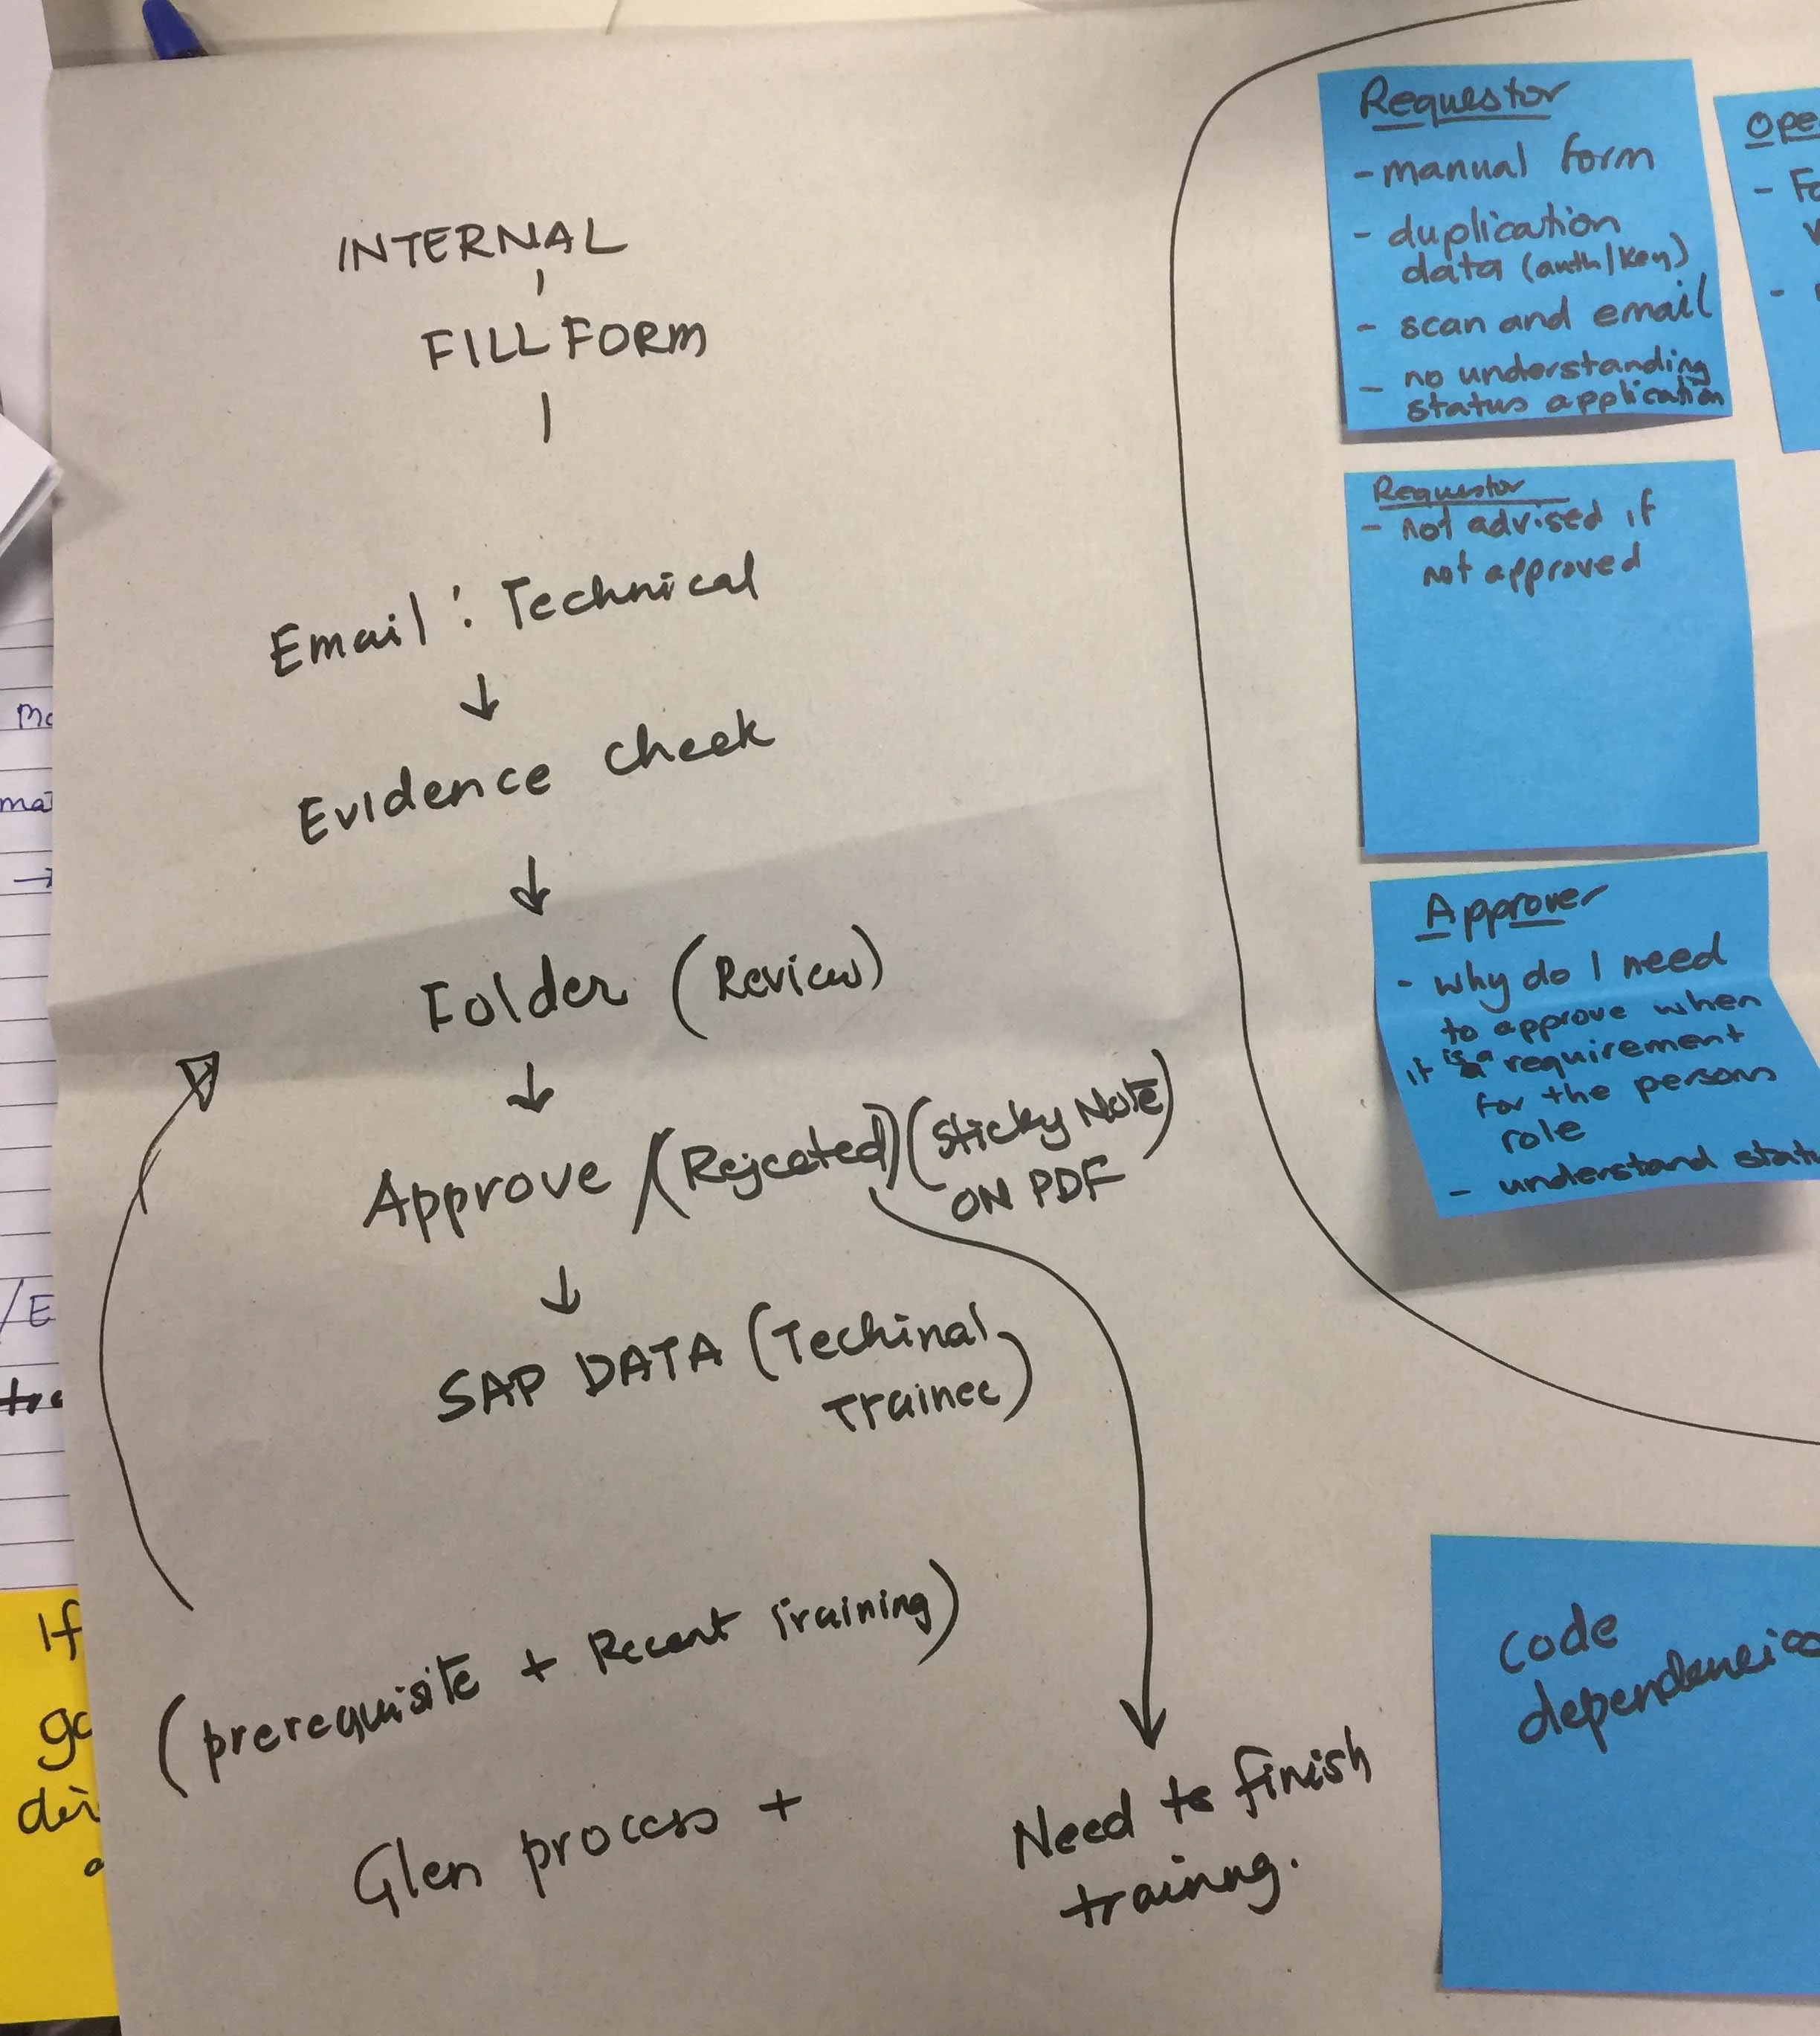 INTERNAL
FILL FORM
Email : Technical
Evidence Check
Folder (Review)
Approve /(Rejected) (Sticky Note)
ON PDF
SAP DATA (Techinal
Trainee)
(prerequisite + Recent Training)
Glen process +
Need to finish
trainng.
Requestor
- manual form
- duplication
data (auth/key)
- scan and email
- no understanding
status application
Requestor
- Not advised if
not approved
Approver
- why do I need
to approve when
it is a requirement
for the persons
role
- understand stat
Ope
- Fo
Code
dependencies
If
go
dir
/E